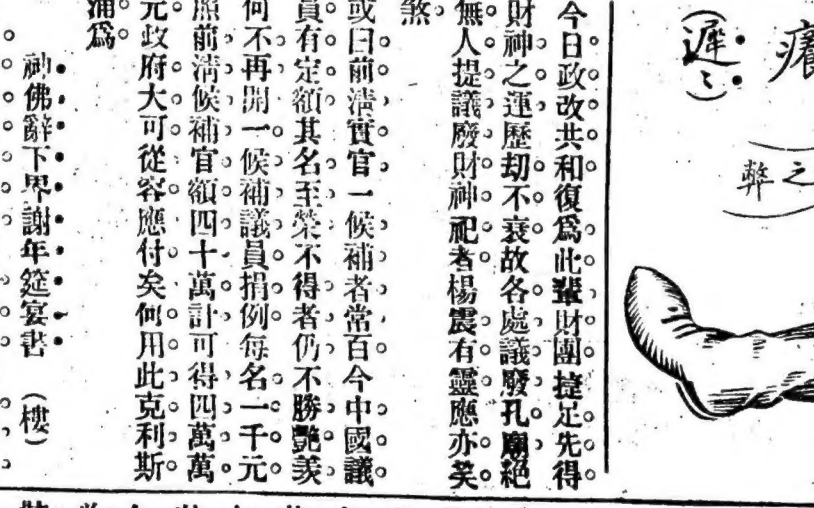 癢
(遲々)
之
弊
今日政改共和復爲此輩財團捷足先得
財神之運歷刧不衰故各處議廢孔廟絕
無人提議廢財神祀者楊震有靈應亦笑
煞
或曰前清實官一候補者常百今中國議
員有定額其名至榮不得者仍不勝艷羨
何不再開一候補議員捐例每名一千元
照前淸候補官額四十萬計可得四萬萬
元政府大可從容應付矣何用此克利斯
浦爲
神佛辭下界謝年筵宴書 (樓)